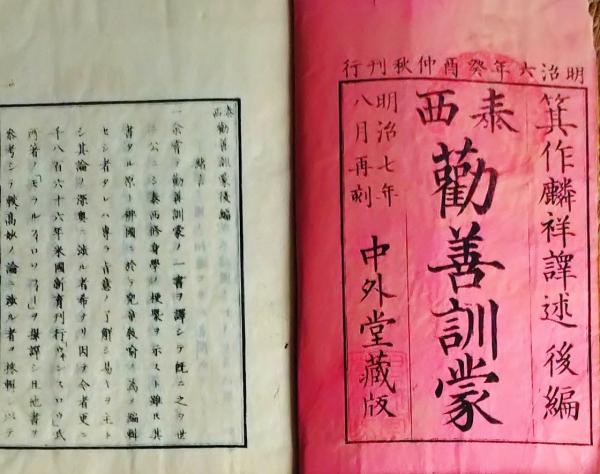 明治六年癸酉仲秋刊行
箕作麟祥譯述 後編
泰西
勸善訓蒙
明治七年
八月再刻
中外堂藏版
泰西勸善訓蒙後編
緒言
一余甞テ勸善訓蒙ノ一書ヲ譯シテ既ニ之ヲ世
ニ公ニシ泰西修身學ノ梗槩ヲ示スト雖其
書タル原ト佛國ニ於テ兒童教喩ノ為メ編輯
セシ者タレハ專ラ旨意ノ了解シ易キヲ主ト
シ其論ノ深奧ニ渉ル者希ナリ因テ今者更ニ
千八百六十六年米國新育刊行ウヰンスロウ氏
所著ノ「モラルフィロソフィー」ヲ譯シ且他書ヲ
參考シテ較高妙ノ論ニ渉ル者ヲ採輯シ以テ